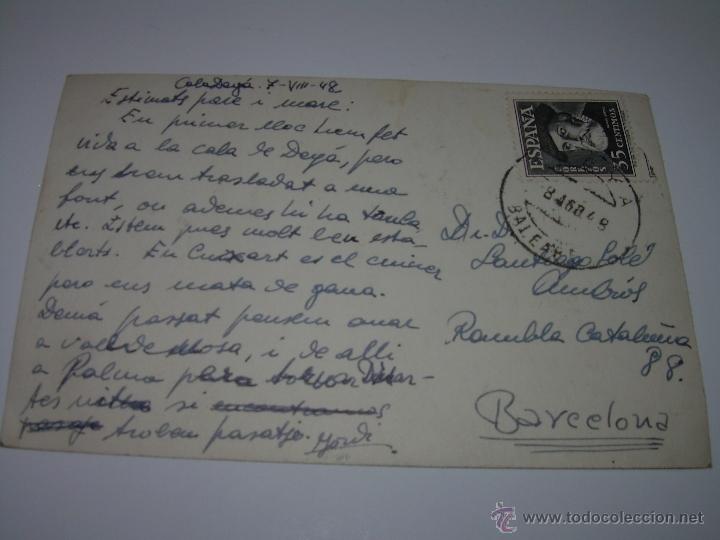 Cala Deyá. 7-VIII-48
Estimats pare i mare:
En primer lloc hem fet
vida a la cala de Deyá, pero
ens hem trasladat a una
font, on ademes hi ha taula
etc. Estem pues molt ben esta-
blerts. En Cuixart es el cuiner
pero ens mata de gana.
Demá passat pensem anar
a Valldemosa, i de alli
a Palma para tornar Dimar-
tes si encontramos
pasaje trobem pasatje. Jordi
ESPAÑA
CORREOS
35 CENTIMOS
8 AGO 48
BALEARES
Dr. D.
Santiago Solé
Ambrós
Rambla Cataluña
88.
Barcelona
www.todocoleccion.net